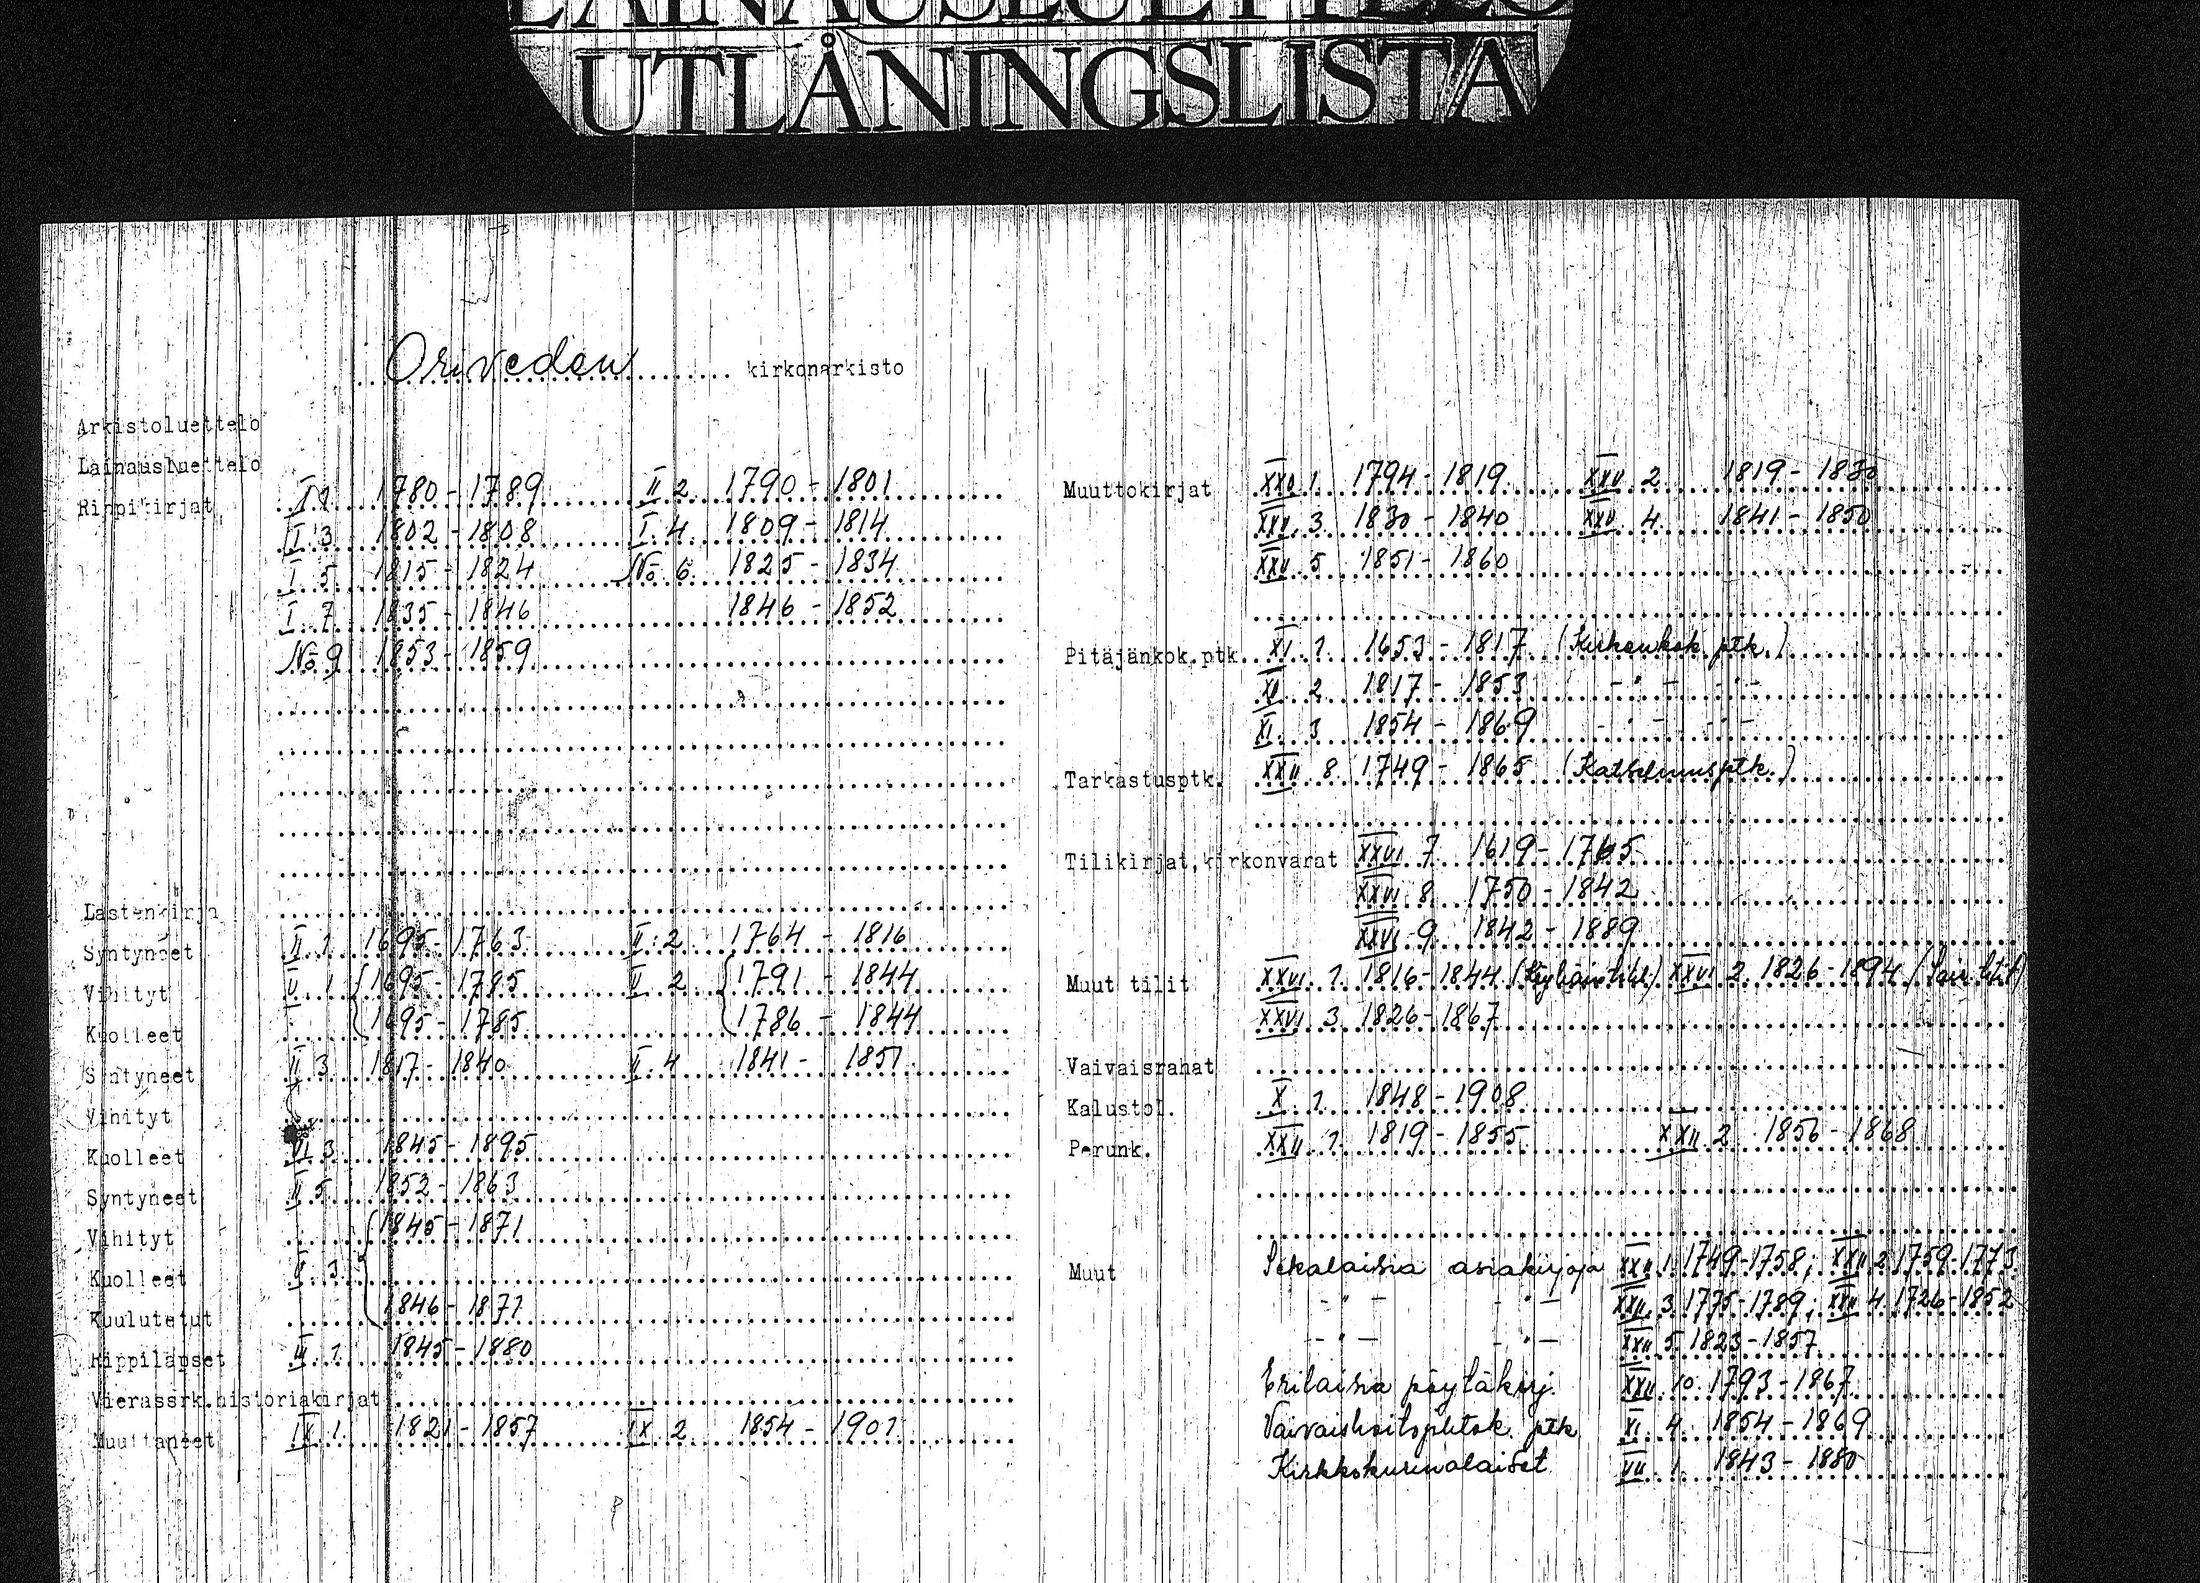 LAINAUSLUETTELO
UTLÅNINGSLISTA
Oriveden kirkonarkisto
Arkistoluettelo
Lainausluettelo
Rippikirjat I 1 1780-1789 II 2 1790-1801
I 3 1802-1808 I 4 1809-1814
I 5 1815-1824 No 6 1825-1834
I 7 1835-1846 1846-1852
No 9 1853-1859
Lastenkirja
Syntyneet II 1 1695-1763 II 2 1764-1816
Vihityt V 1 1695-1785 II 2 1791-1844
Kuolleet 1695-1785 1786-1844
Syntyneet II 3 1817-1840 II 4 1841-1851
Vihityt
Kuolleet VI 3 1845-1895
Syntyneet II 5 1852-1863
Vihityt 1845-1871
Kuolleet V 3
Kuulutetut 1846-1871
Rippilapset III 1 1845-1880
Vierassrk.historiakirjat
Muuttaneet IX 1 1821-1857 IX 2 1854-1901
Muuttokirjat XXV 1 1794-1819 XXV 2 1819-1830
XXV 3 1830-1840 XXV 4 1841-1850
XXV 5 1851-1860
Pitäjänkok.ptk. XI 1 1653-1817 (Kirkonkok. ptk.)
XI 2 1817-1853 -"- -"-
XI 3 1854-1869 -"- -"-
Tarkastusptk. XXII 8 1749-1865 (Katselmusptk.)
Tilikirjat,kirkonvarat XXVI 7 1619-1765
XXVI 8 1750-1842
XXVI 9 1842-1889
Muut tilit XXVI 1 1816-1844 XXVI 2 1826-1894
XXVI 3 1826-1867
Vaivaisrahat
Kalustol. X 1 1848-1908
Perunk. XXII 1 1819-1855 XXII 2 1856-1868
Muut Sekalaisia asiakirjoja XXII 1 1749-1758; XXII 2 1759-1773
-"- -"- XXII 3 1775-1789; XXII 4 1726-1852
-"- -"- XXII 5 1823-1857
Erilaisia pöytäkirj. XXII 10 1793-1867
Vaivaishoito ptk XI 4 1854-1869
Kirkkokurinalaiset VII 1 1843-1880